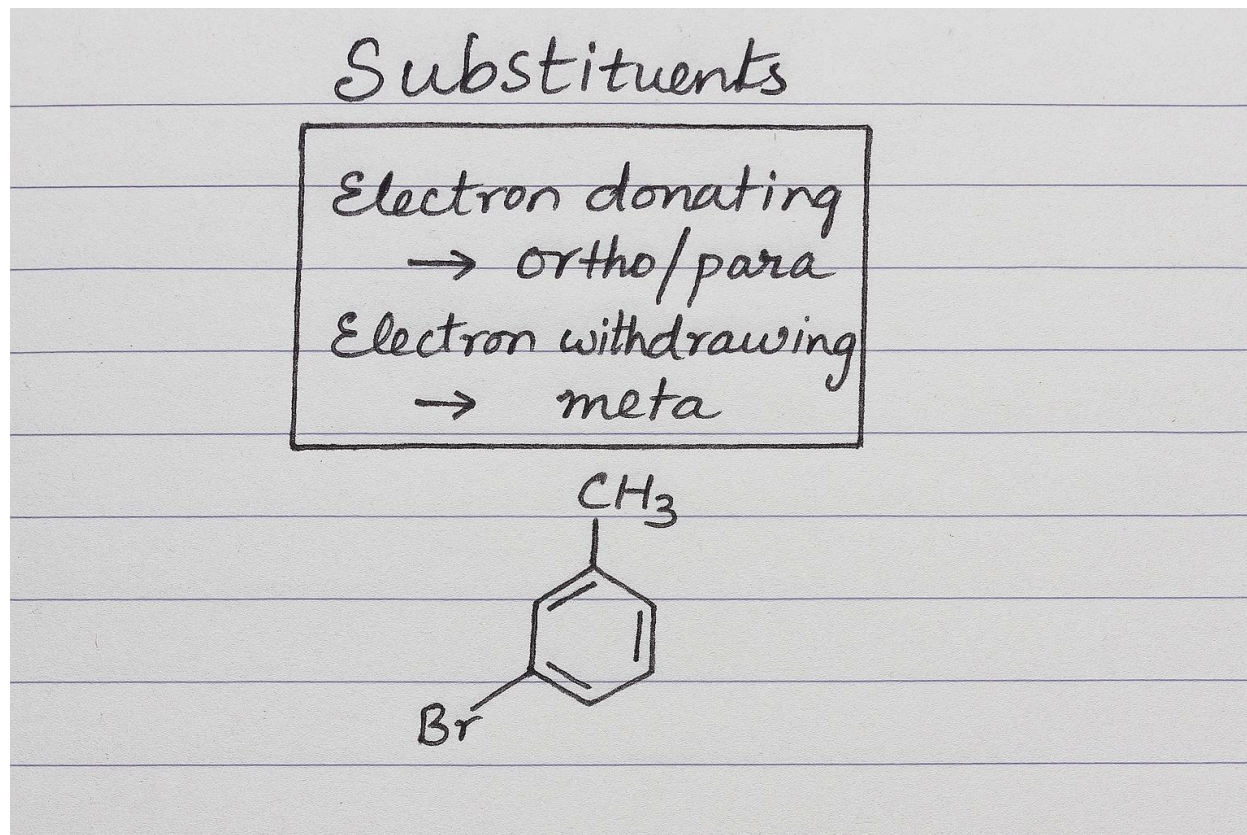 Substituents
Electron donating
→ ortho/para
Electron withdrawing
→ meta
CH3
Br